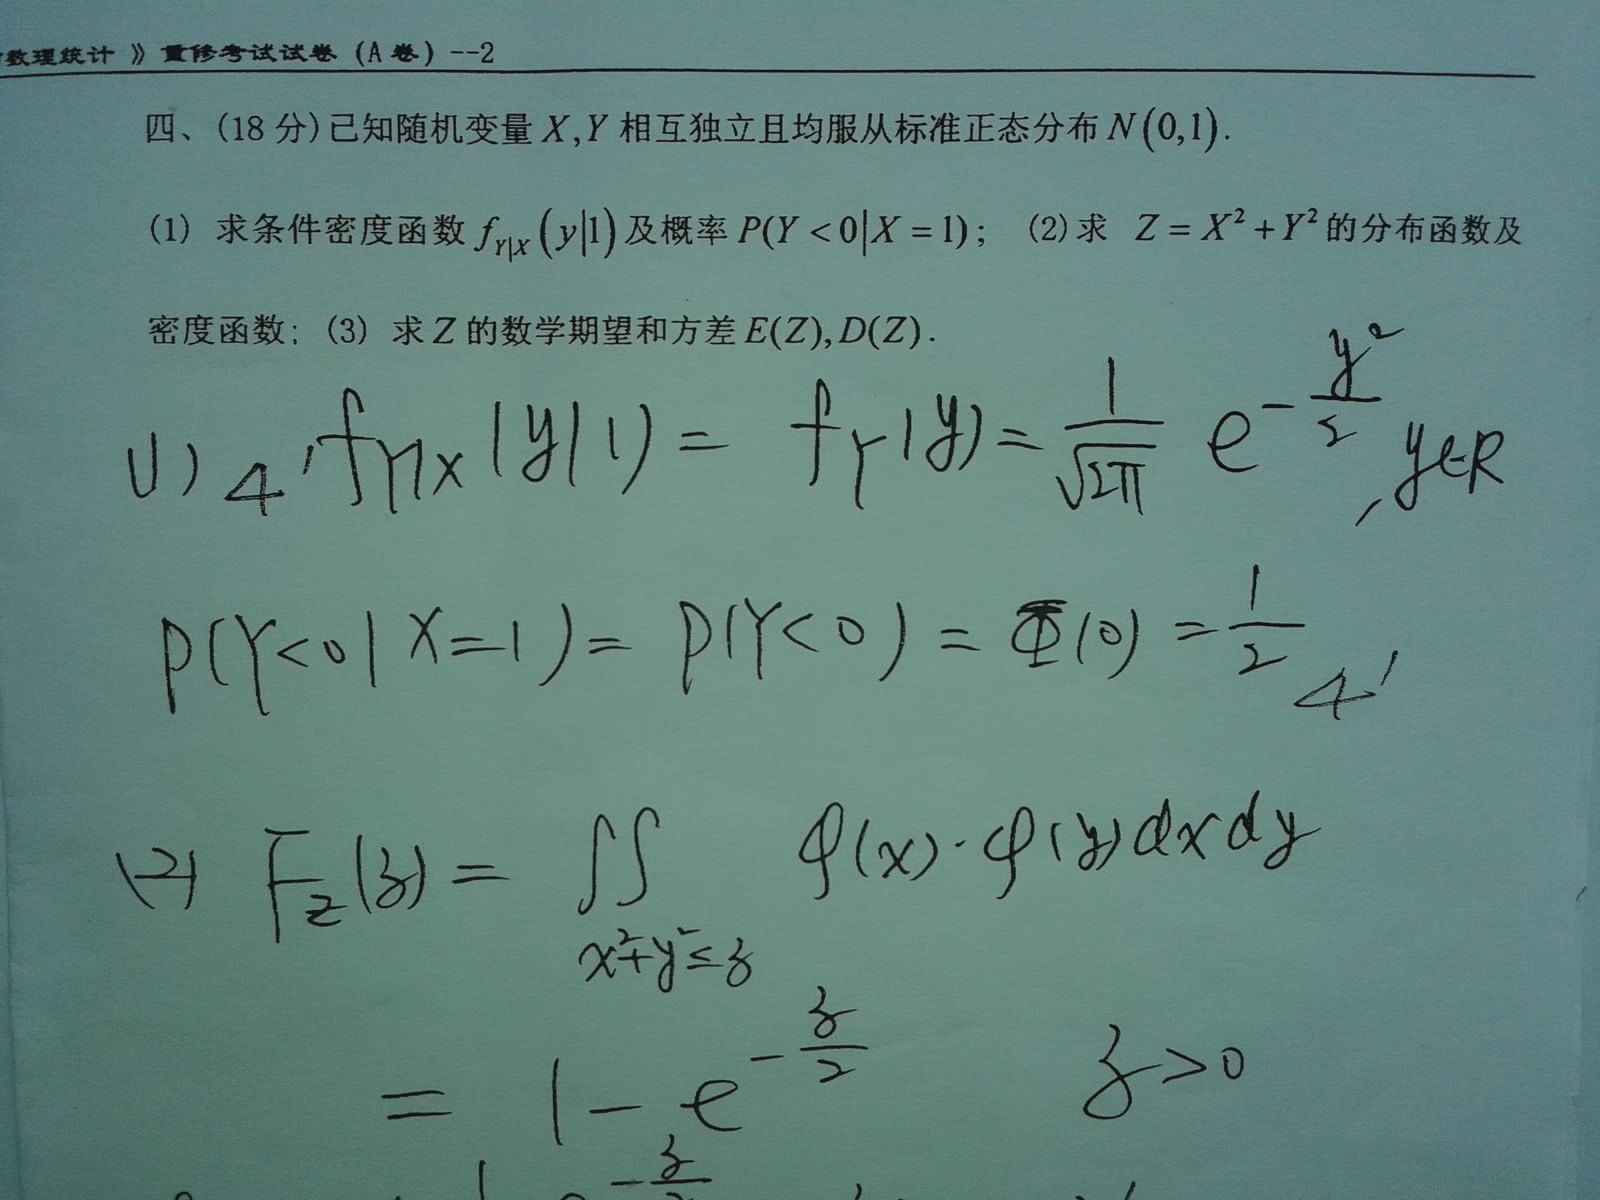 数理统计 》重修考试试卷 (A 卷) --2
四、(18 分) 已知随机变量 X, Y 相互独立且均服从标准正态分布 N(0,1).
(1) 求条件密度函数 f_{Y|X}(y|1) 及概率 P(Y < 0|X = 1); (2) 求 Z = X² + Y² 的分布函数及
密度函数; (3) 求 Z 的数学期望和方差 E(Z), D(Z).
(1) 4' f_{Y|X}(y|1) = f_Y(y) = \frac{1}{\sqrt{2π}} e^{-\frac{y²}{2}}, y∈R
P(Y<0|X=1) = P(Y<0) = Φ(0) = \frac{1}{2} 4'
(2) F_Z(z) = ∬_{x²+y²≤z} φ(x)·φ(y)dxdy
= 1 - e^{-\frac{z}{2}} z>0